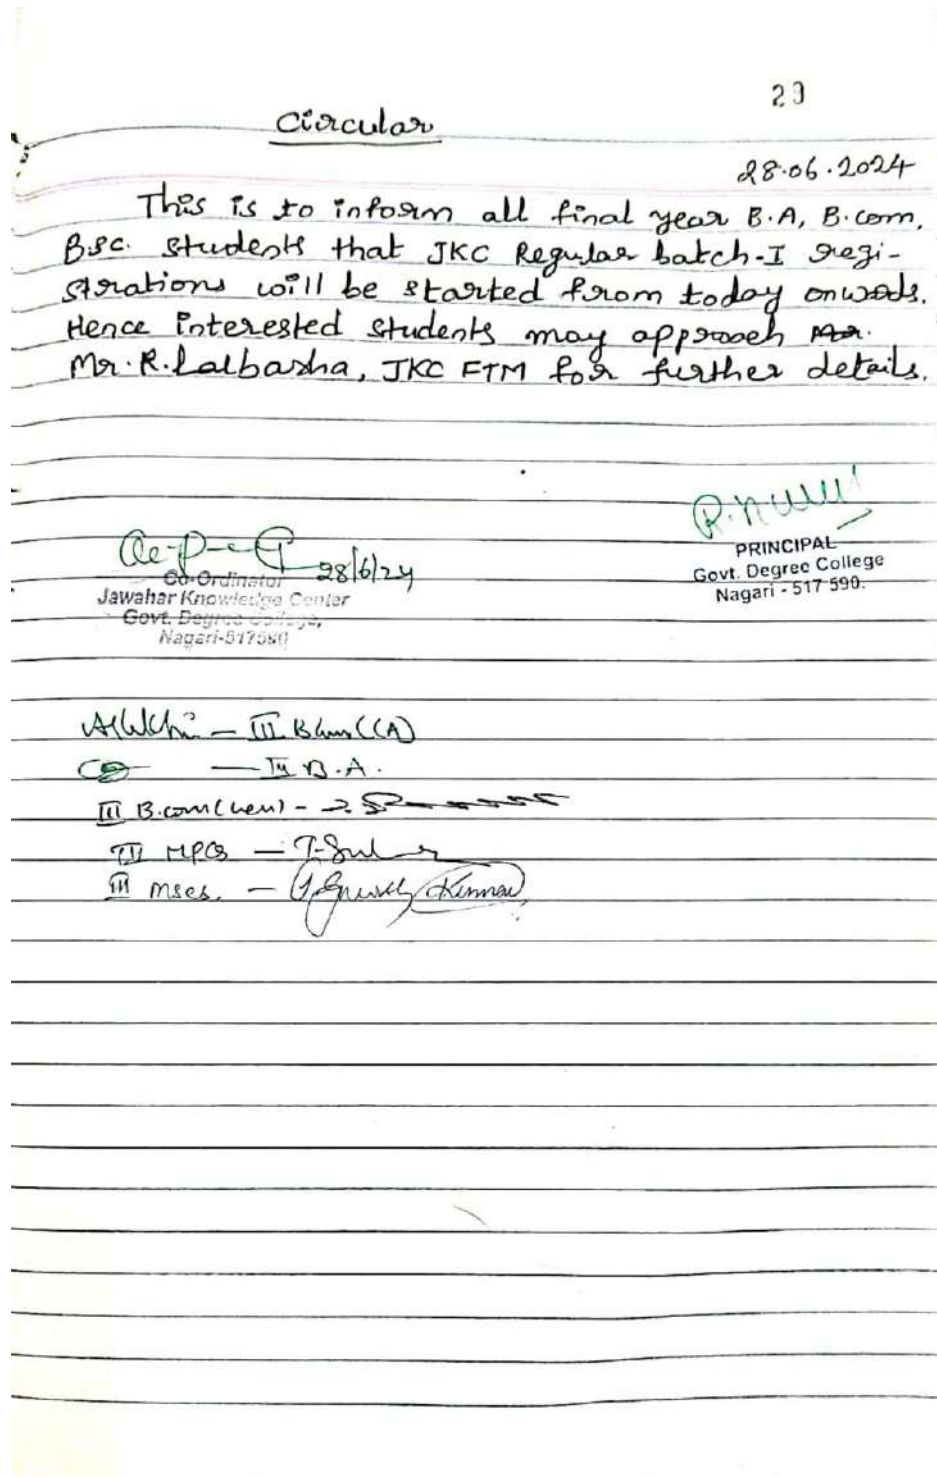 29
Circular
28.06.2024
This is to inform all final year B.A, B.com,
B.sc. students that JKC Regular batch-I regi-
strations will be started from today onwods.
Hence interested students may approach
Mr. R. Lalbasha, JKC FTM for further details.
28/6/24
Co-Ordinator
Jawahar Knowledge Center
Govt. Degree College,
Nagari-517590
PRINCIPAL
Govt. Degree College
Nagari - 517 590.
III Bcom(CA)
III B.A.
III B.com(Gen) -
III MPCs -
III mscs. -